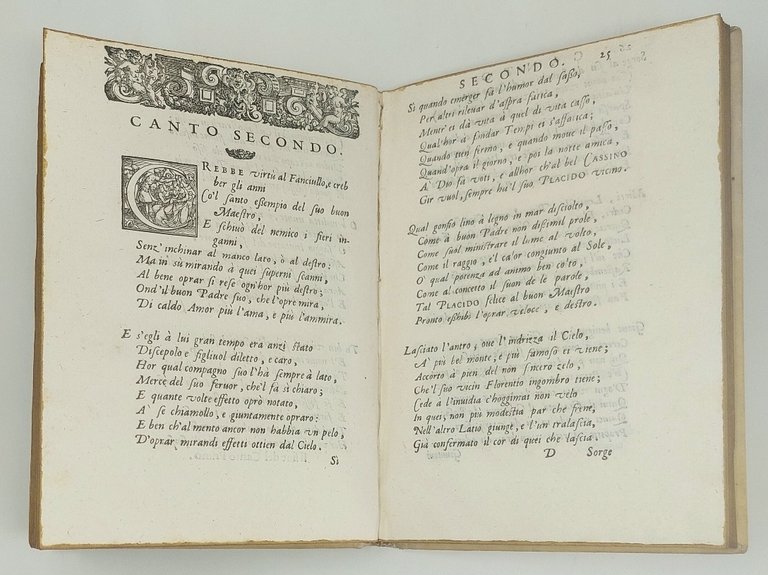 CANTO SECONDO.
CREBBE virtù al Fanciullo, e creb
ber gli anni
Co'l santo essempio del suo buon
Maestro,
E schiuò del nemico i fieri in-
ganni,
Senz' inchinar al manco lato, ò al destro:
Ma in sù mirando à quei superni scanni,
Al bene oprar si rese ogn'hor più destro;
Ond'il buon Padre suo, che l'opre mira,
Di caldo Amor più l'ama, e più l'ammira.
E s'egli à lui gran tempo era anzi stato
Discepolo e figliuol diletto, e caro,
Hor qual compagno suo l'hà sempre à lato,
Mercè del suo feruor, che'l fà sì chiaro;
E quante volte effetto oprò notato,
A' se chiamollo, e giuntamente opraro:
E ben ch'al mento ancor non habbia vn pelo,
D'oprar mirandi effetti ottien dal Cielo.
Sì
SECONDO. 25
Sì quando emerger fà l'humor dal sasso,
Per altri rileuar d'aspra fatica,
Mentr' ei dà vita à quel di vita casso,
Qual'hor à fondar Tempi ei s'affatica;
Quando tien fermo, e quando moue il passo,
Quand'opra il giorno, e poi la notte amica,
A' Dio fà voti, e allhor ch'al bel CASSINO
Gir vuol, sempre hà'l suo PLACIDO vicino.
Qual gonfio lino à legno in mar disciolto,
Come à buon Padre non dissimil prole,
Come suol ministrare il lume al volto,
Come il raggio, e'l calor congiunto al Sole,
O' qual potenza ad animo ben colto,
Come al concetto il suon de le parole,
Tal PLACIDO felice al buon Maestro
Pronto essibì l'oprar veloce, e destro.
Lasciato l'antro, oue l'indrizza il Cielo,
A' più bel monte, e più famoso ei viene;
Accorto à pien del non sincero zelo,
Che'l suo vicin Florentio ingombro tiene;
Cede à l'inuidia c'hoggimai non velo
In quei, non più modestia par che frene,
Nell'altro Latio giunge, e l'un tralascia,
Già confermato il cor di quei che lascia.
D Sorge